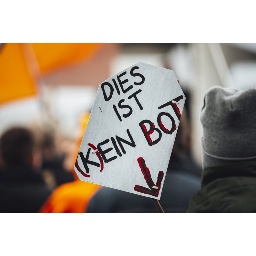 DIES
IST
(K)EIN BOT